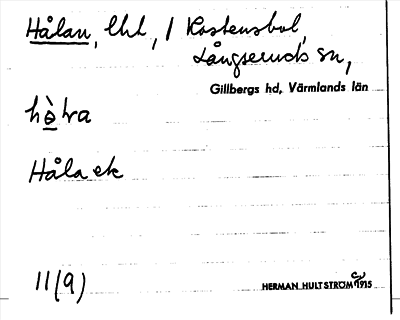 Hålan, lht, / Rostensbol,
Långseruds sn,
Gillbergs hd, Värmlands län
Håla ek
11(9)
HERMAN HULTSTRÖM 1915